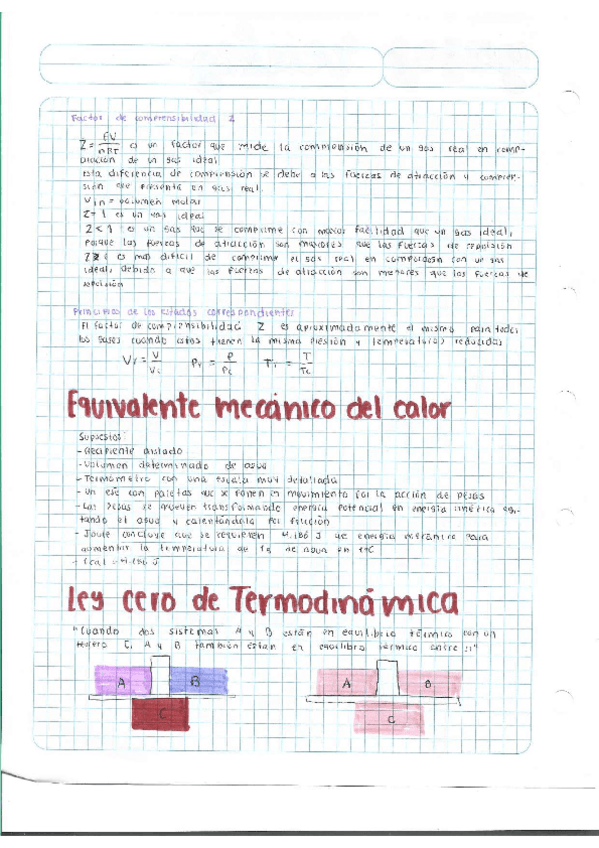 Factor de comprensibilidad Z
Z = PV/nRT es un factor que mide la comprensión de un gas real en comp-
aración de un gas ideal
Esta diferencia de comprensión se debe a las fuerzas de atracción y compren-
sión que presenta en gas real.
Vm = volumen molar
Z=1 es un gas ideal
Z<1 es un gas que se comprime con mayor facilidad que un gas ideal,
porque las fuerzas de atracción son mayores que las fuerzas de repulsión
es mas dificil de comprimir el gas real en comparación con un gas
ideal, debido a que las fuerzas de atracción son menores que las fuerzas de
repulsión
Principios de los estados correspondientes
El factor de comprensibilidad Z es aproximadamente el mismo para todos
los gases cuando estos tienen la misma presión y temperatura reducidas
Vr = V/Vc Pr = P/Pc Tr = T/Tc
Equivalente mecánico del calor
Supuestos:
- Recipiente aislado
- Volumen determinado de agua
- Termometro con una escala muy detallada
- Un eje con paletas que se ponen en movimiento por la acción de pesas
- Las pesas se mueven transformando energía potencial en energía cinética agi-
tando el agua y calentándola por fricción
- Joule concluye que se requieren 4.186 J de energía mecánica para
aumentar la temperatura de 1g de agua en 1°C
- 1cal = 4.186 J
Ley cero de Termodinámica
"Cuando dos sistemas A y B están en equilibrio térmico con un
tercero C, A y B también están en equilibrio térmico entre sí"
A B A B
C C